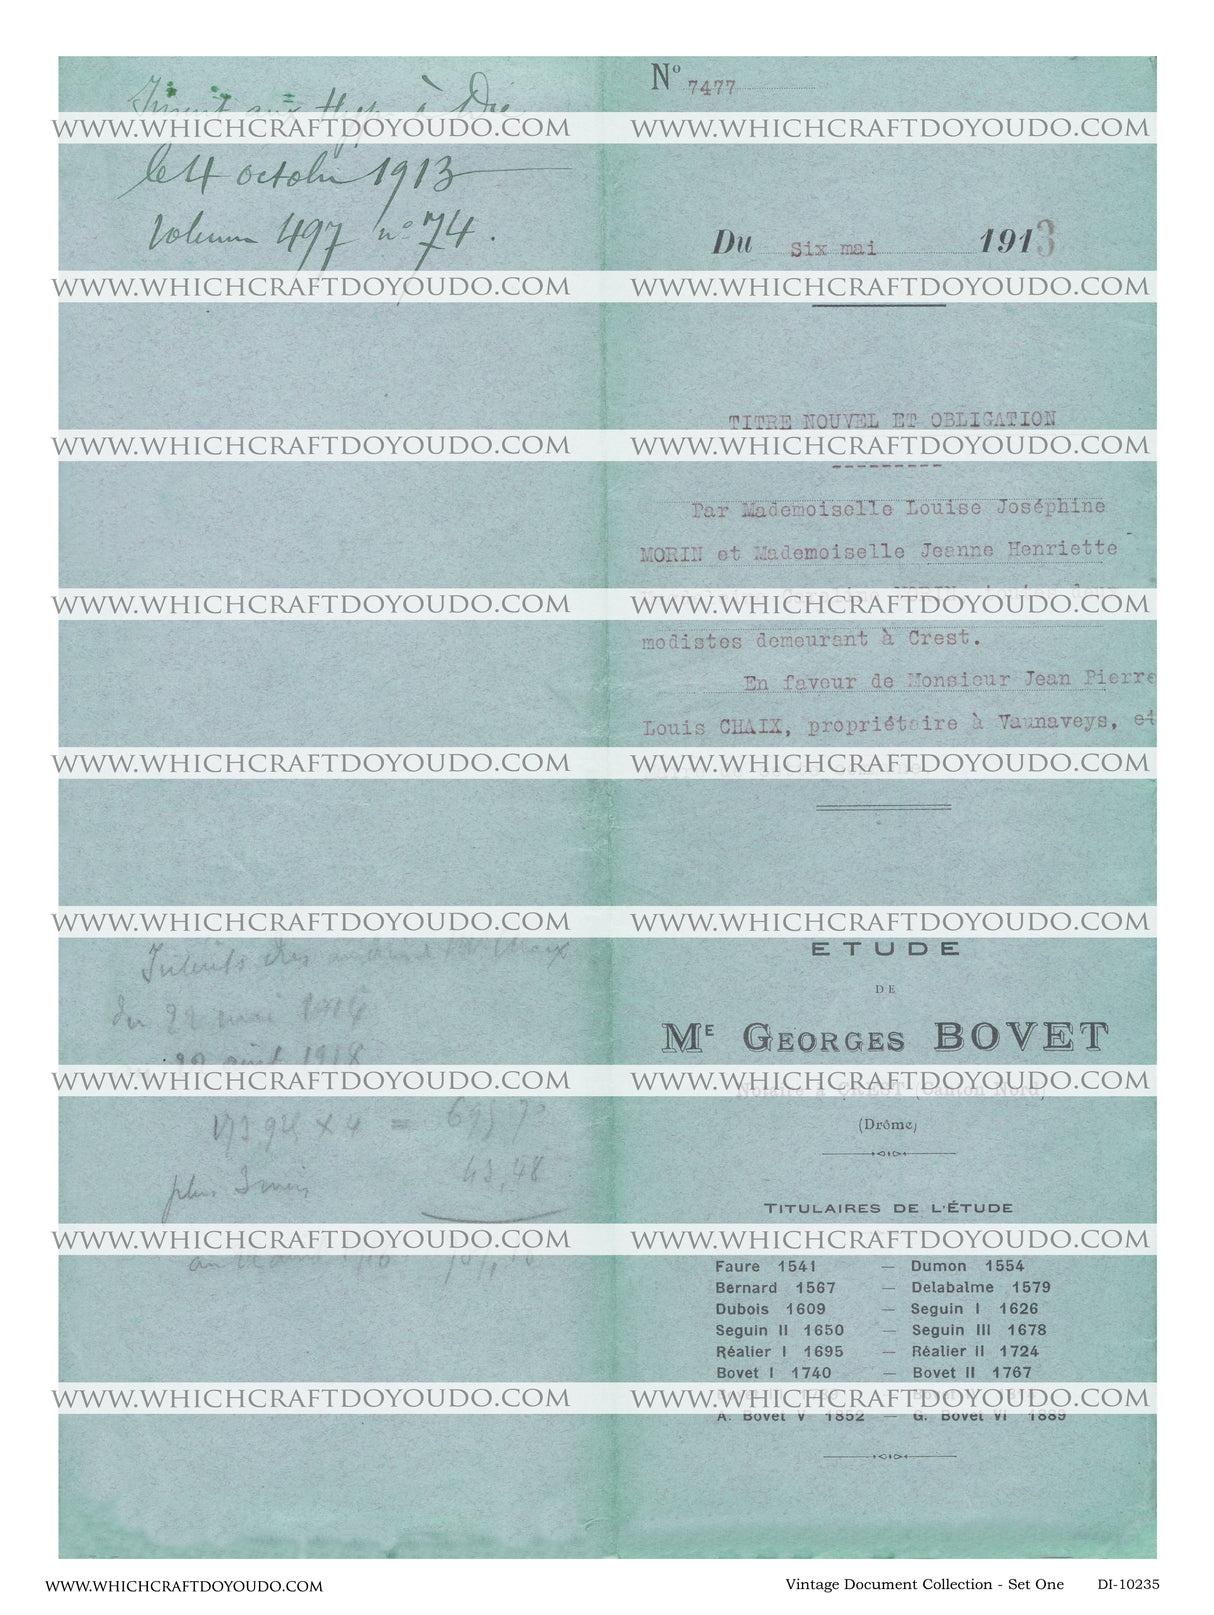 Inscrit aux Hyp. à Die
WWW.WHICHCRAFTDOYOUDO.COM
le 4 octobre 1913
Volume 497 n° 74.
WWW.WHICHCRAFTDOYOUDO.COM
WWW.WHICHCRAFTDOYOUDO.COM
WWW.WHICHCRAFTDOYOUDO.COM
WWW.WHICHCRAFTDOYOUDO.COM
WWW.WHICHCRAFTDOYOUDO.COM
Intérêts des
du 22 mai 1914
22 août 1918
WWW.WHICHCRAFTDOYOUDO.COM
173 94 x 4 =
plus 3 mois 43,48
WWW.WHICHCRAFTDOYOUDO.COM
au
WWW.WHICHCRAFTDOYOUDO.COM
N° 7477
WWW.WHICHCRAFTDOYOUDO.COM
Du Six mai 1913
WWW.WHICHCRAFTDOYOUDO.COM
TITRE NOUVEL ET OBLIGATION
WWW.WHICHCRAFTDOYOUDO.COM
Par Mademoiselle Louise Joséphine
MORIN et Mademoiselle Jeanne Henriette
WWW.WHICHCRAFTDOYOUDO.COM
modistes demeurant à Crest.
En faveur de Monsieur Jean Pierre
Louis CHAIX, propriétaire à Vaunaveys, et
WWW.WHICHCRAFTDOYOUDO.COM
WWW.WHICHCRAFTDOYOUDO.COM
ETUDE
DE
ME GEORGES BOVET
WWW.WHICHCRAFTDOYOUDO.COM
Notaire à CREST (Canton Nord)
(Drôme)
TITULAIRES DE L'ÉTUDE
WWW.WHICHCRAFTDOYOUDO.COM
Faure 1541 — Dumon 1554
Bernard 1567 — Delabalme 1579
Dubois 1609 — Seguin I 1626
Seguin II 1650 — Seguin III 1678
Réalier I 1695 — Réalier II 1724
Bovet I 1740 — Bovet II 1767
WWW.WHICHCRAFTDOYOUDO.COM
A. Bovet V 1852 — G. Bovet VI 1889
WWW.WHICHCRAFTDOYOUDO.COM
Vintage Document Collection - Set One DI-10235